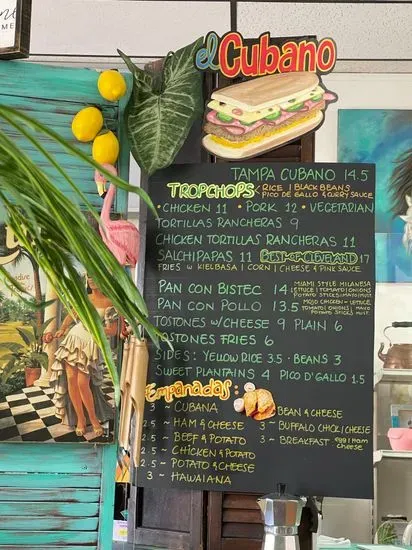 el Cubano
TAMPA CUBANO 14.5
TROPCHOPS / RICE | BLACK BEANS
PICO DE GALLO & CURRY SAUCE
• CHICKEN 11 • PORK 12 • VEGETARIAN
TORTILLAS RANCHERAS 9
CHICKEN TORTILLAS RANCHERAS 11
SALCHIPAPAS 11 BEST OF CLEVELAND 17
FRIES W KIELBASA | CORN | CHEESE & PINK SAUCE
PAN CON BISTEC 14
MIAMI STYLE MILANESA
LETTUCE | TOMATO | ONIONS
POTATO STICKS | MAYO MUST
PAN CON POLLO 13.5
MOJO CHICKEN - LETTUCE,
TOMATO | ONIONS | MAYO
POTATO STICKS MUST
TOSTONES W/CHEESE 9 PLAIN 6
TOSTONES FRIES 6
SIDES: YELLOW RICE 3.5 • BEANS 3
SWEET PLANTAINS 4 PICO D'GALLO 1.5
Empanadas:
3 ~ CUBANA
2.5 ~ HAM & CHEESE
2.5 ~ BEEF & POTATO
2.5 ~ CHICKEN & POTATO
2.5 ~ POTATO & CHEESE
3 ~ HAWAIANA
BEAN & CHEESE
3 ~ BUFFALO CHICK | CHEESE
3 ~ BREAKFAST egg | Ham
cheese